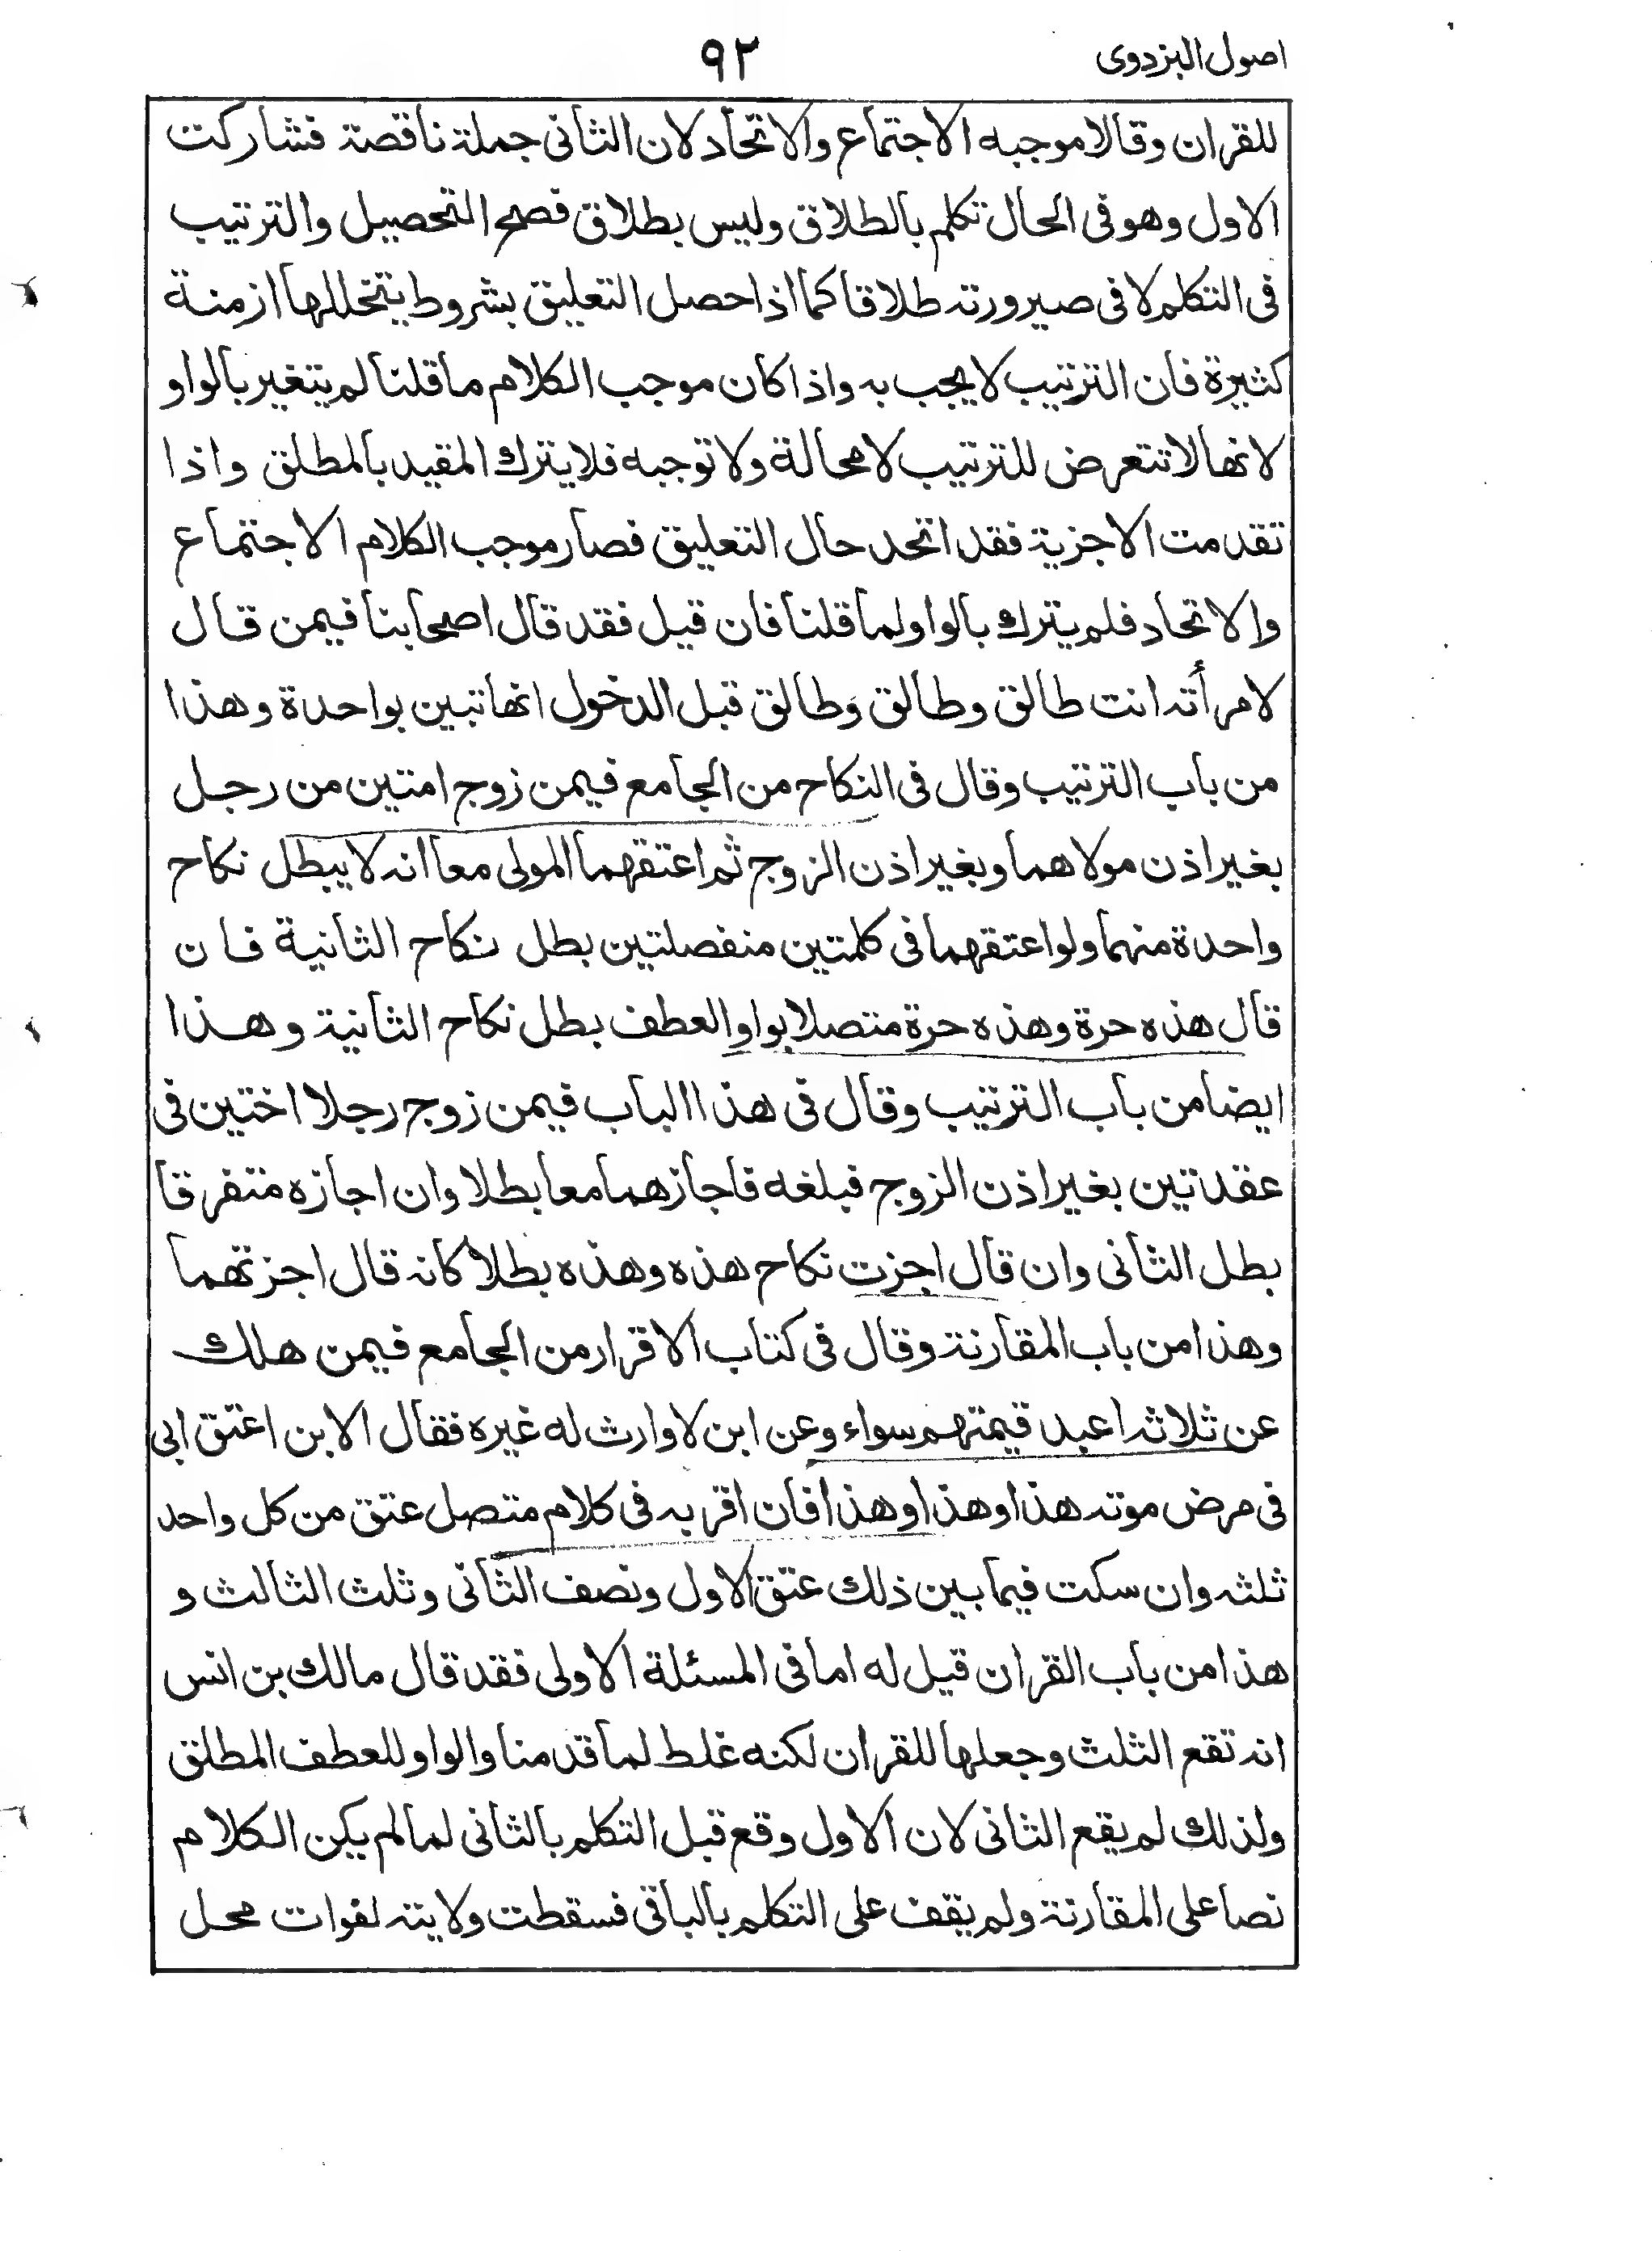 اصول البزدوى
٩٢
للقران وقالا موجبه الاجتماع والاتحاد لان الثانى جملة ناقصة فشاركت
الاول وهو فى الحال تكلم بالطلاق وليس بطلاق فصح التحصيل والترتيب
فى التكلم لا فى صيرورته طلاقا كما اذا حصل التعليق بشروط يتخللها ازمنة
كثيرة فان الترتيب لا يجب به واذا كان موجب الكلام ما قلنا لم يتغير بالواو
لانها لا تتعرض للترتيب لا محالة ولا توجبه فلا يترك المقيد بالمطلق واذا
تقدمت الاجزية فقد اتحد حال التعليق فصار موجب الكلام الاجتماع
والاتحاد فلم يترك بالواو لما قلنا فان قيل فقد قال اصحابنا فيمن قال
لامرأته انت طالق وطالق وطالق قبل الدخول انها تبين بواحدة وهذا
من باب الترتيب وقال فى النكاح من الجامع فيمن زوج امتين من رجل
بغير اذن مولاهما وبغير اذن الزوج ثم اعتقهما المولى معا انه لا يبطل نكاح
واحدة منهما ولو اعتقهما فى كلمتين منفصلتين بطل نكاح الثانية فان
قال هذه حرة وهذه حرة متصلا بواو العطف بطل نكاح الثانية وهذا
ايضا من باب الترتيب وقال فى هذا الباب فيمن زوج رجلا اختين فى
عقدتين بغير اذن الزوج فبلغه فاجازهما معا بطلا وان اجازه متفرقا
بطل الثانى وان قال اجزت نكاح هذه وهذه بطلا كانه قال اجزتهما
وهذا من باب المقارنة وقال فى كتاب الاقرار من الجامع فيمن هلك
عن ثلاثه اعبد قيمتهم سواء وعن ابن لا وارث له غيره فقال الابن اعتق ابى
فى مرض موته هذا وهذا وهذا فان اقر به فى كلام متصل عتق من كل واحد
ثلثه وان سكت فيما بين ذلك عتق الاول ونصف الثانى وثلث الثالث و
هذا من باب القران قيل له اما فى المسئلة الاولى فقد قال مالك بن انس
انه تقع الثلث وجعلها للقران لكنه غلط لما قدمنا والواو للعطف المطلق
ولذلك لم يقع الثانى لان الاول وقع قبل التكلم بالثانى لما لم يكن الكلام
نصا على المقارنة ولم يقف على التكلم بالباقى فسقطت ولايته لفوات محل